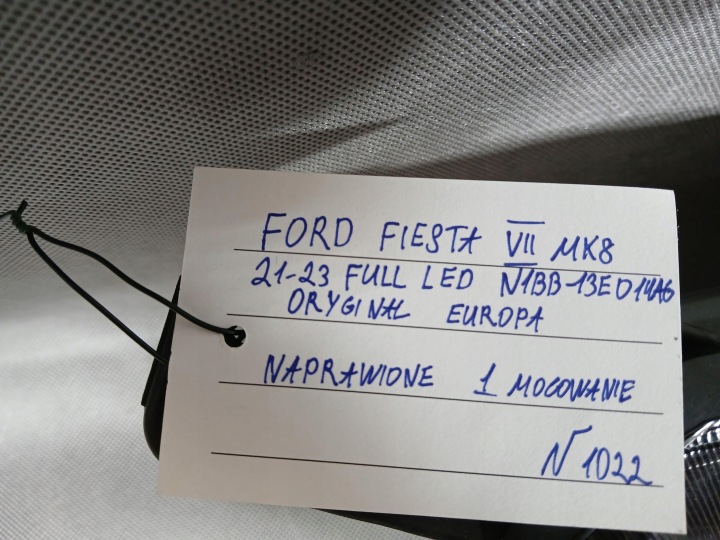 FORD FIESTA VII MK8
21-23 FULL LED N1BB-13E014AG
ORYGINAL EUROPA
NAPRAWIONE 1 MOCOWANIE
N 1022